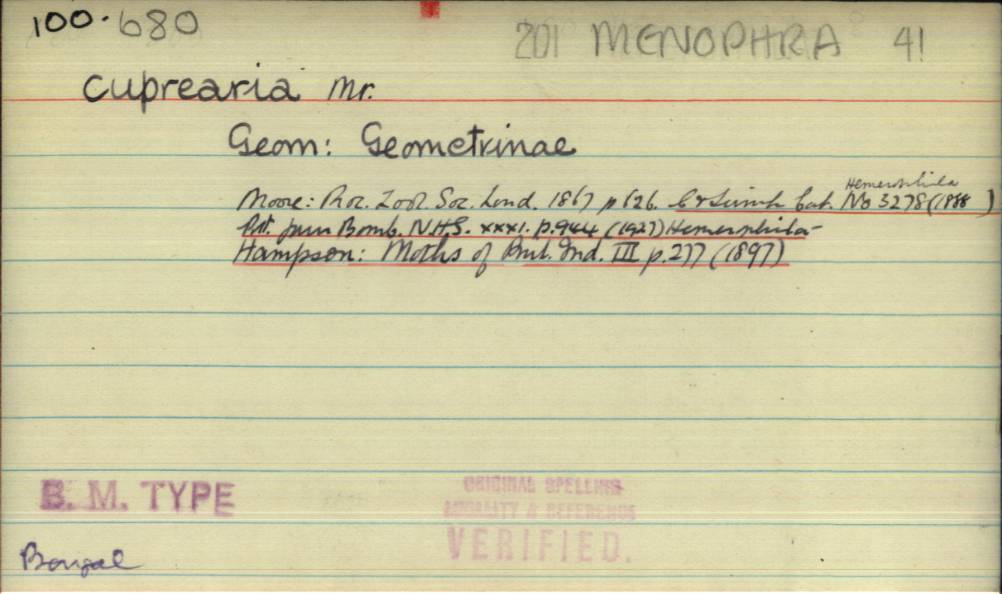 100.680
201 MENOPHRA 41
cuprearia Mr.
Geom: Geometrinae
Hemerophila
Moore: Proc. Zool. Soc. Lond. 1867 p 626. C & Swinh Cat. No 3278 (1888)
Prt. Journ Bomb. N.H.S. xxxi. p.944 (1927) Hemerophila
Hampson: Moths of Brit. Ind. III p.277 (1897)
B. M. TYPE
ORIGINAL SPELLING
LOCALITY & REFERENCE
VERIFIED.
Bengal